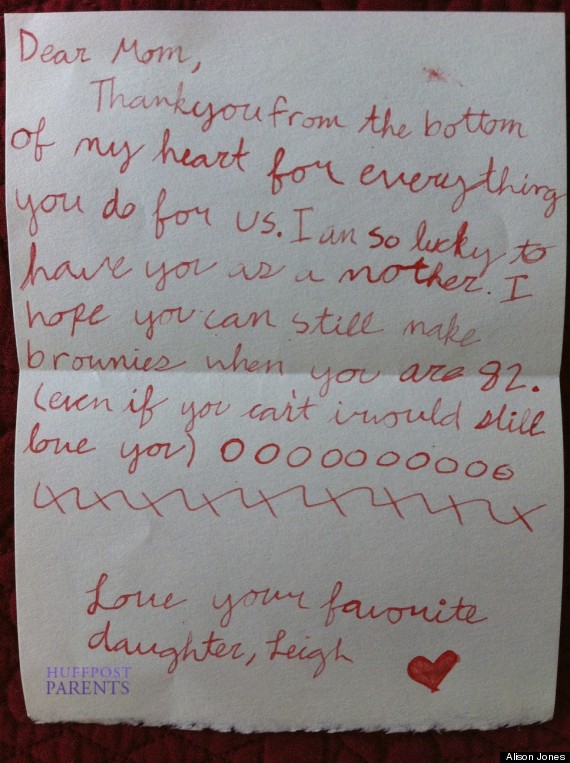 Dear Mom,
Thankyou from the bottom
of my heart for everything
you do for us. I am so lucky to
have you as a mother. I
hope you can still make
brownies when you are 82.
(even if you can't i would still
love you) OOOOOOOOOO
XXXXXXXXXX
Love your favorite
daughter, Leigh
HUFFPOST
PARENTS
Alison Jones